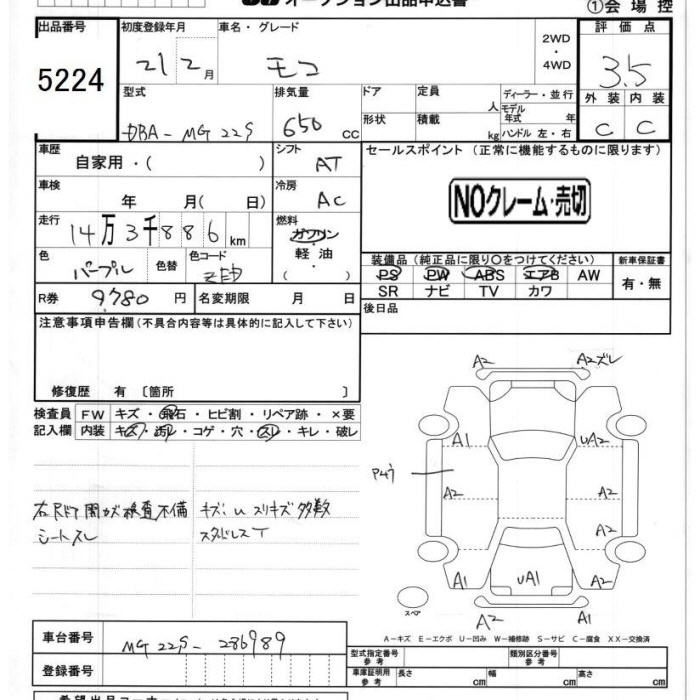 オークション出品申込書
①会 場 控
出品番号 初度登録年月 車名・グレード 評 価 点
5224 21 2月 モコ 2WD・4WD 3.5
型式 排気量 ドア 定員 人 ディーラー・並行 外 装 内 装
DBA-MG22S 650 cc 形状 積載 kg モデル年式 年 ハンドル 左・右 C C
車歴 自家用・( ) シフト AT セールスポイント (正常に機能するものに限ります)
車検 年 月( 日) 冷房 AC NOクレーム・売切
走行 14万3千886km 燃料 ガソリン・軽油・( )
色 パープル 色替 色コード Z
装備品(純正品に限り○をつけてください) 新車保証書
PS PW ABS エアB AW 有・無
SR ナビ TV カワ
R券 9780 円 名変期限 月 日 後日品
注意事項申告欄(不具合内容等は具体的に記入して下さい)
修復歴 有 〔箇所 〕
検査員 FW キズ・飛石・ヒビ割・リペア跡・×要
記入欄 内装 キズ・汚れ・コゲ・穴・スレ・キレ・破レ
A2 A2ズレ
A1 UA2
A2 A2
A2
A1 UA1 A1
A2 A1
右Rドア開かず検査不備 キズ・U スリキズ多数
シートスレ スタッドレスT
スペア
A-キズ E-エクボ U-凹み W-補修跡 S-サビ C-腐食 XX-交換済
車台番号 MG22S-286989
型式指定番号 参考 類別区分番号 参考
登録番号 車庫証明用 参考 長さ cm 幅 cm 高さ cm